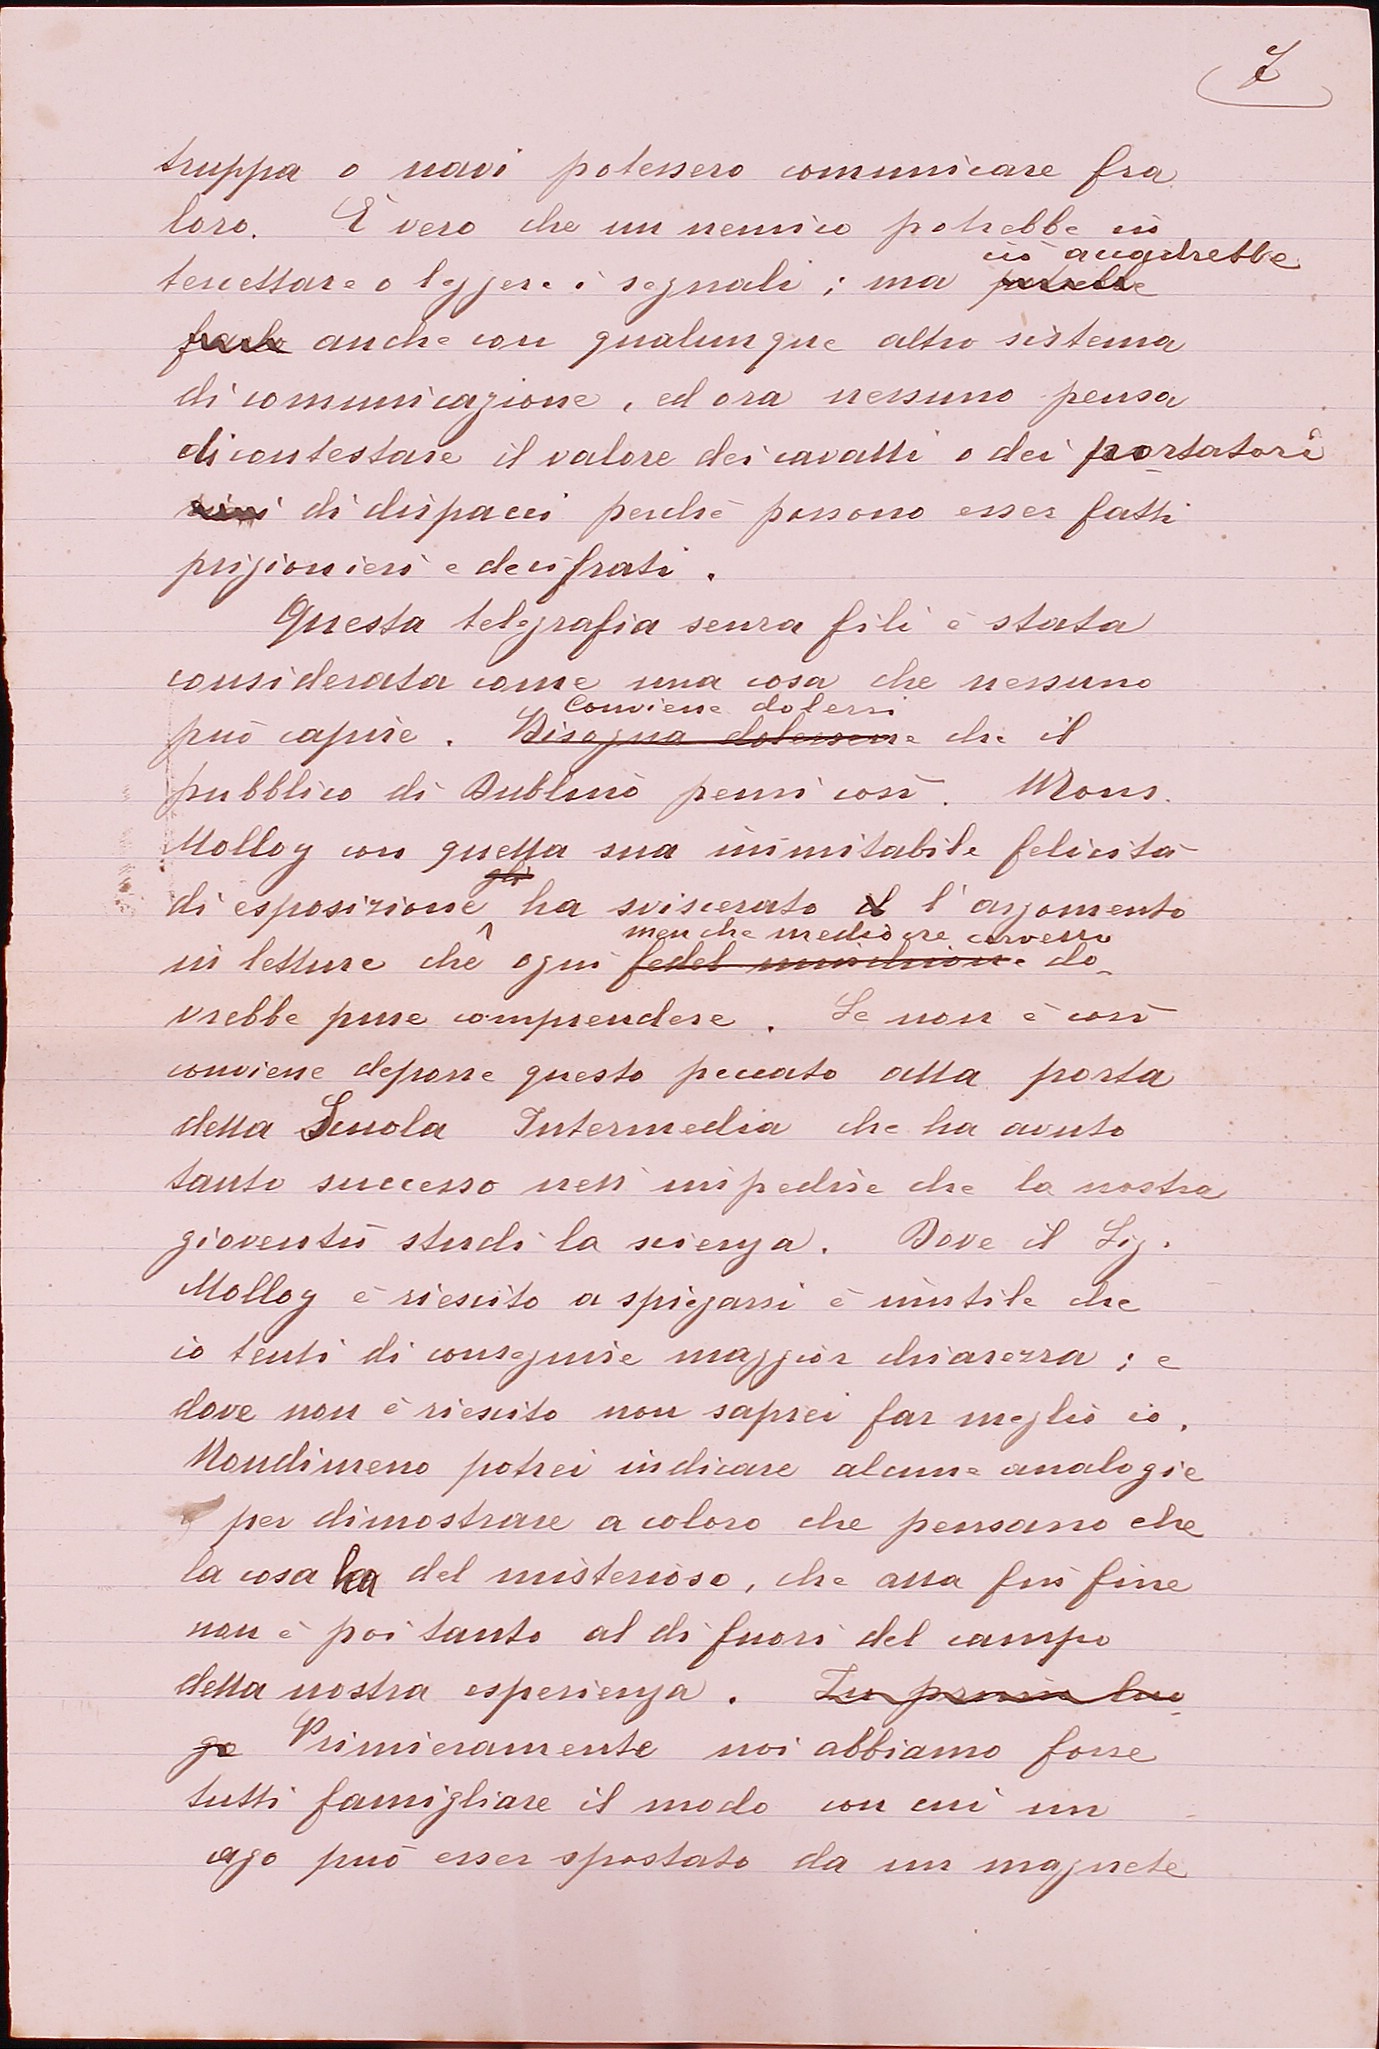 7
truppa o navi potessero comunicare fra
loro. È vero che un nemico potrebbe in
ciò accadrebbe
tercettare o leggere i segnali ; ma potrebbe
farlo anche con qualunque altro sistema
di comunicazione, ed ora nessuno pensa
di contestare il valore dei cavalli o dei portatori
di dispacci perchè possono esser fatti
prigionieri e decifrati.
Questa telegrafia senza fili è stata
considerata come una cosa che nessuno
Conviene dolersi
può capire. Bisogna dolersene che il
pubblico di Dublino pensi così. Mons.
Molloy con quella sua inimitabile felicità
gli
di esposizione ha sviscerato il l'argomento
men che mediocre cervello
in letture che ogni fedel minchione do-
vrebbe pure comprendere. Se non è così
conviene deporre questo peccato alla porta
della Scuola Intermedia che ha avuto
tanto successo nell'impedire che la nostra
gioventù studi la scienza. Dove il Sig.
Molloy è riescito a spiegarsi è inutile che
io tenti di conseguire maggior chiarezza ; e
dove non è riescito non saprei far meglio io.
Nondimeno potrei indicare alcune analogie
per dimostrare a coloro che pensano che
la cosa ha del misterioso, che alla fin fine
non è poi tanto al di fuori del campo
della nostra esperienza. In primo luo-
go Primieramente noi abbiamo forse
tutti famigliare il modo con cui un
ago può esser spostato da un magnete